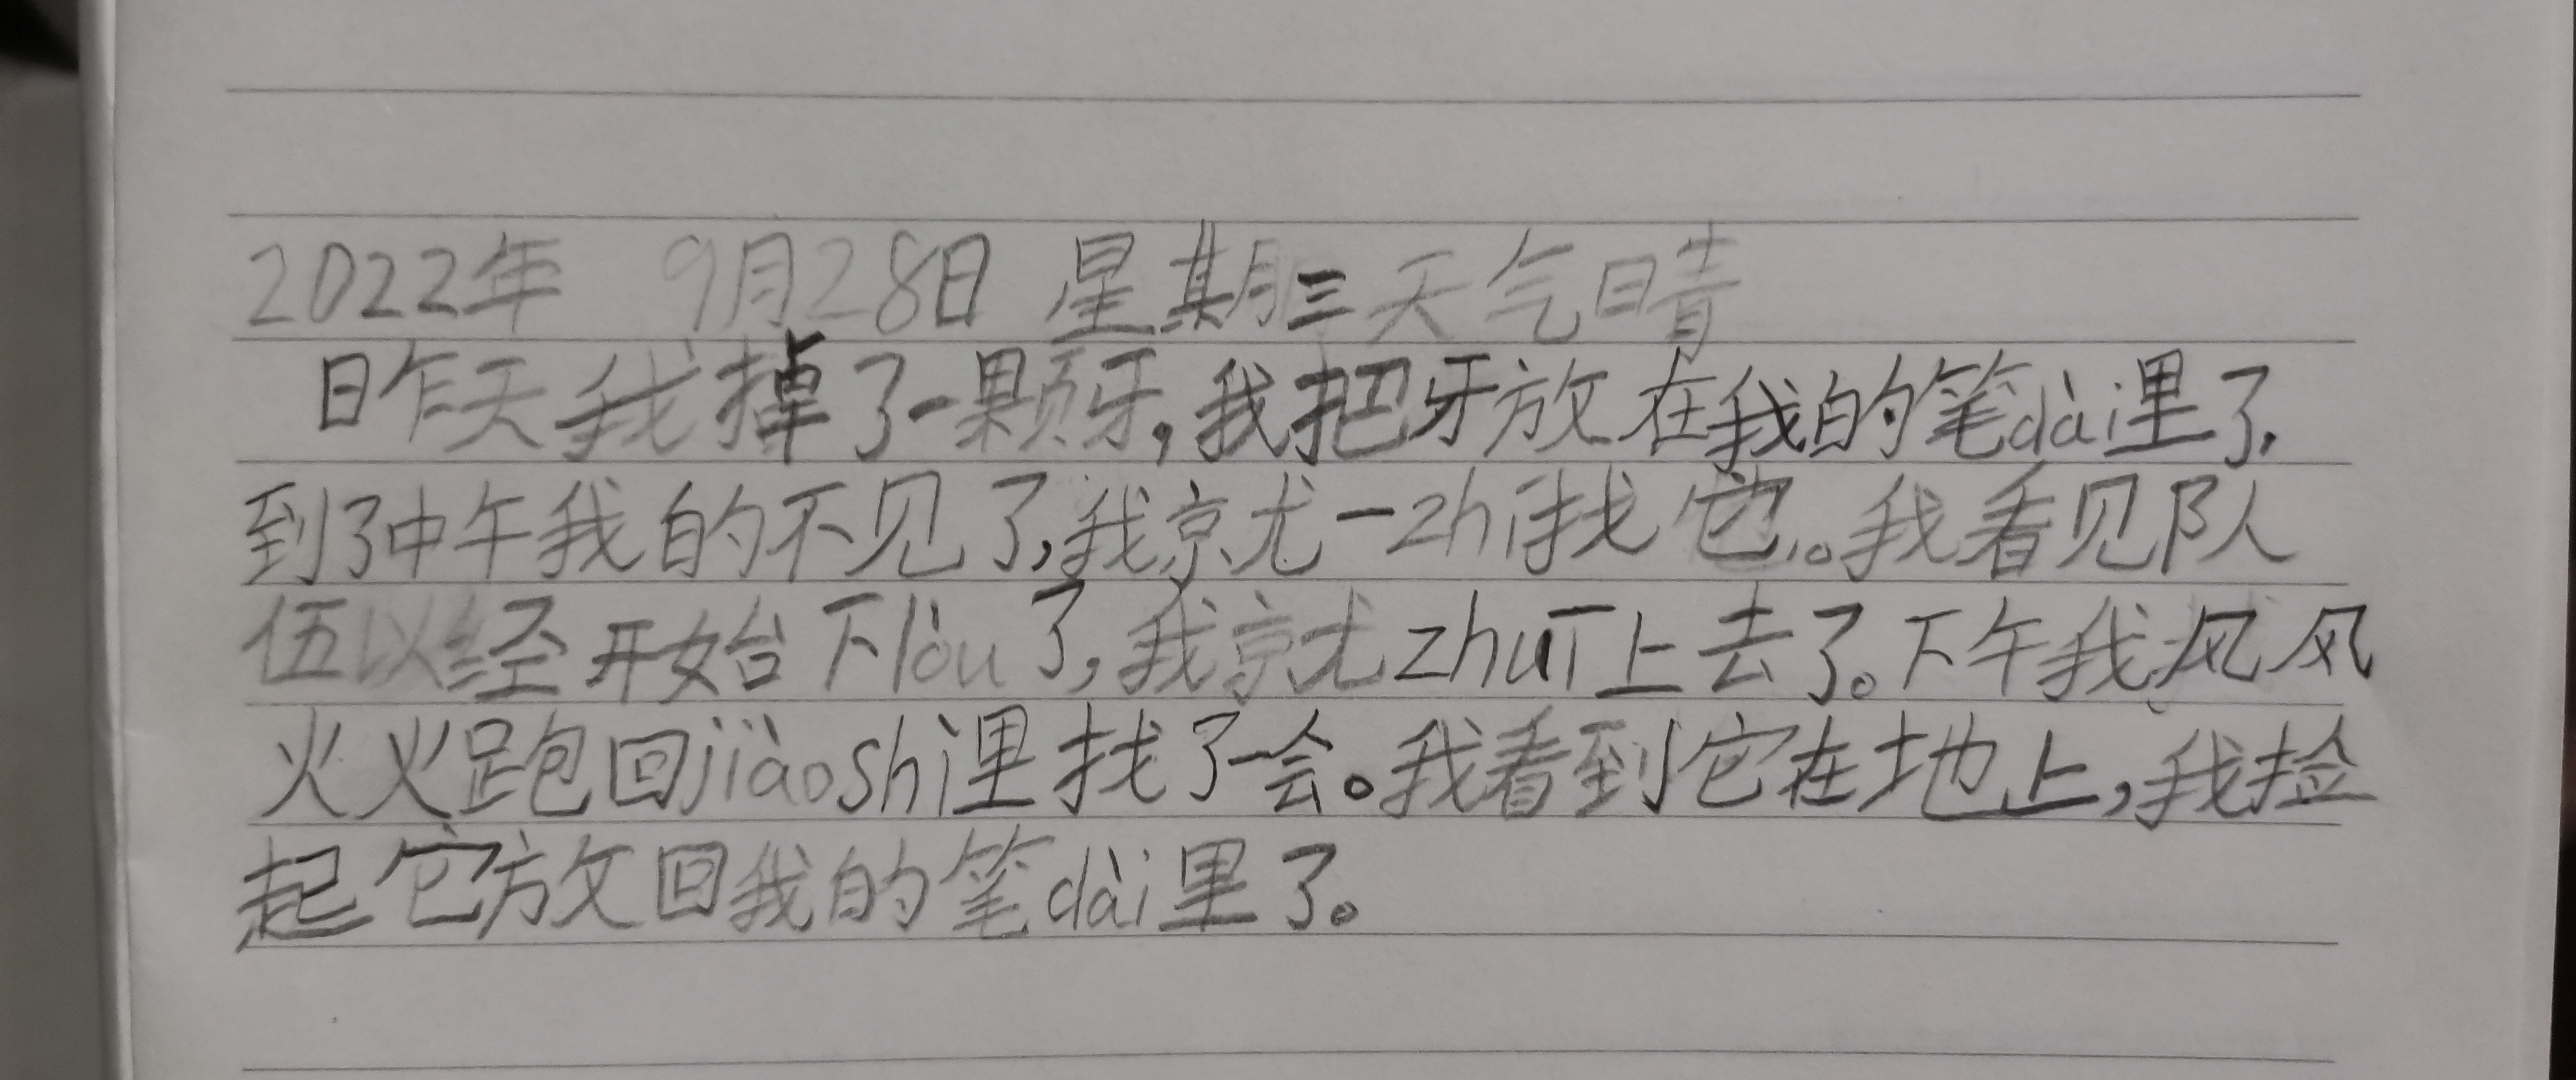 2022年 9月28日 星期三天气晴
昨天我掉了一颗牙,我把牙放在我的笔dài里了,
到了中午我的不见了,我就一zhí找它。我看见队
伍以经开始下lóu了,我就zhuī上去了。下午我风风
火火跑回jiàoshì里找了一会。我看到它在地上,我捡
起它放回我的笔dài里了。